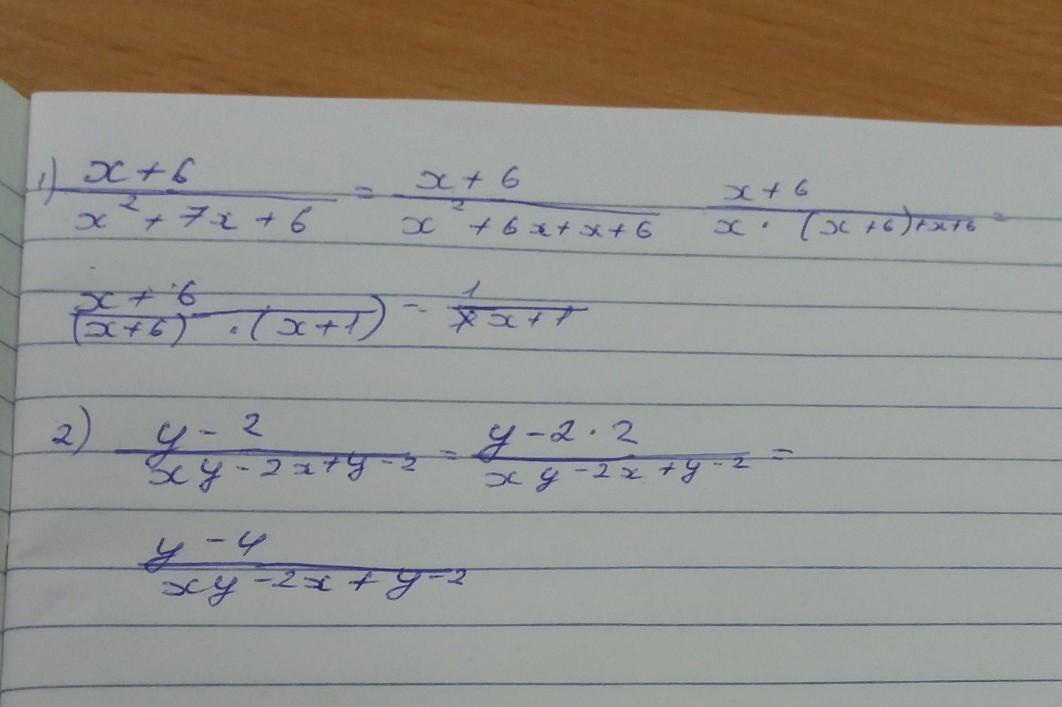 1) x + 6 / x² + 7x + 6 = x + 6 / x² + 6x + x + 6 x + 6 / x · (x + 6) + x + 6 =
x + 6 / (x + 6) · (x + 1) = 1 / x + 1
2) y - 2 / xy - 2x + y - 2 = y - 2 · 2 / xy - 2x + y - 2 =
y - 4 / xy - 2x + y - 2